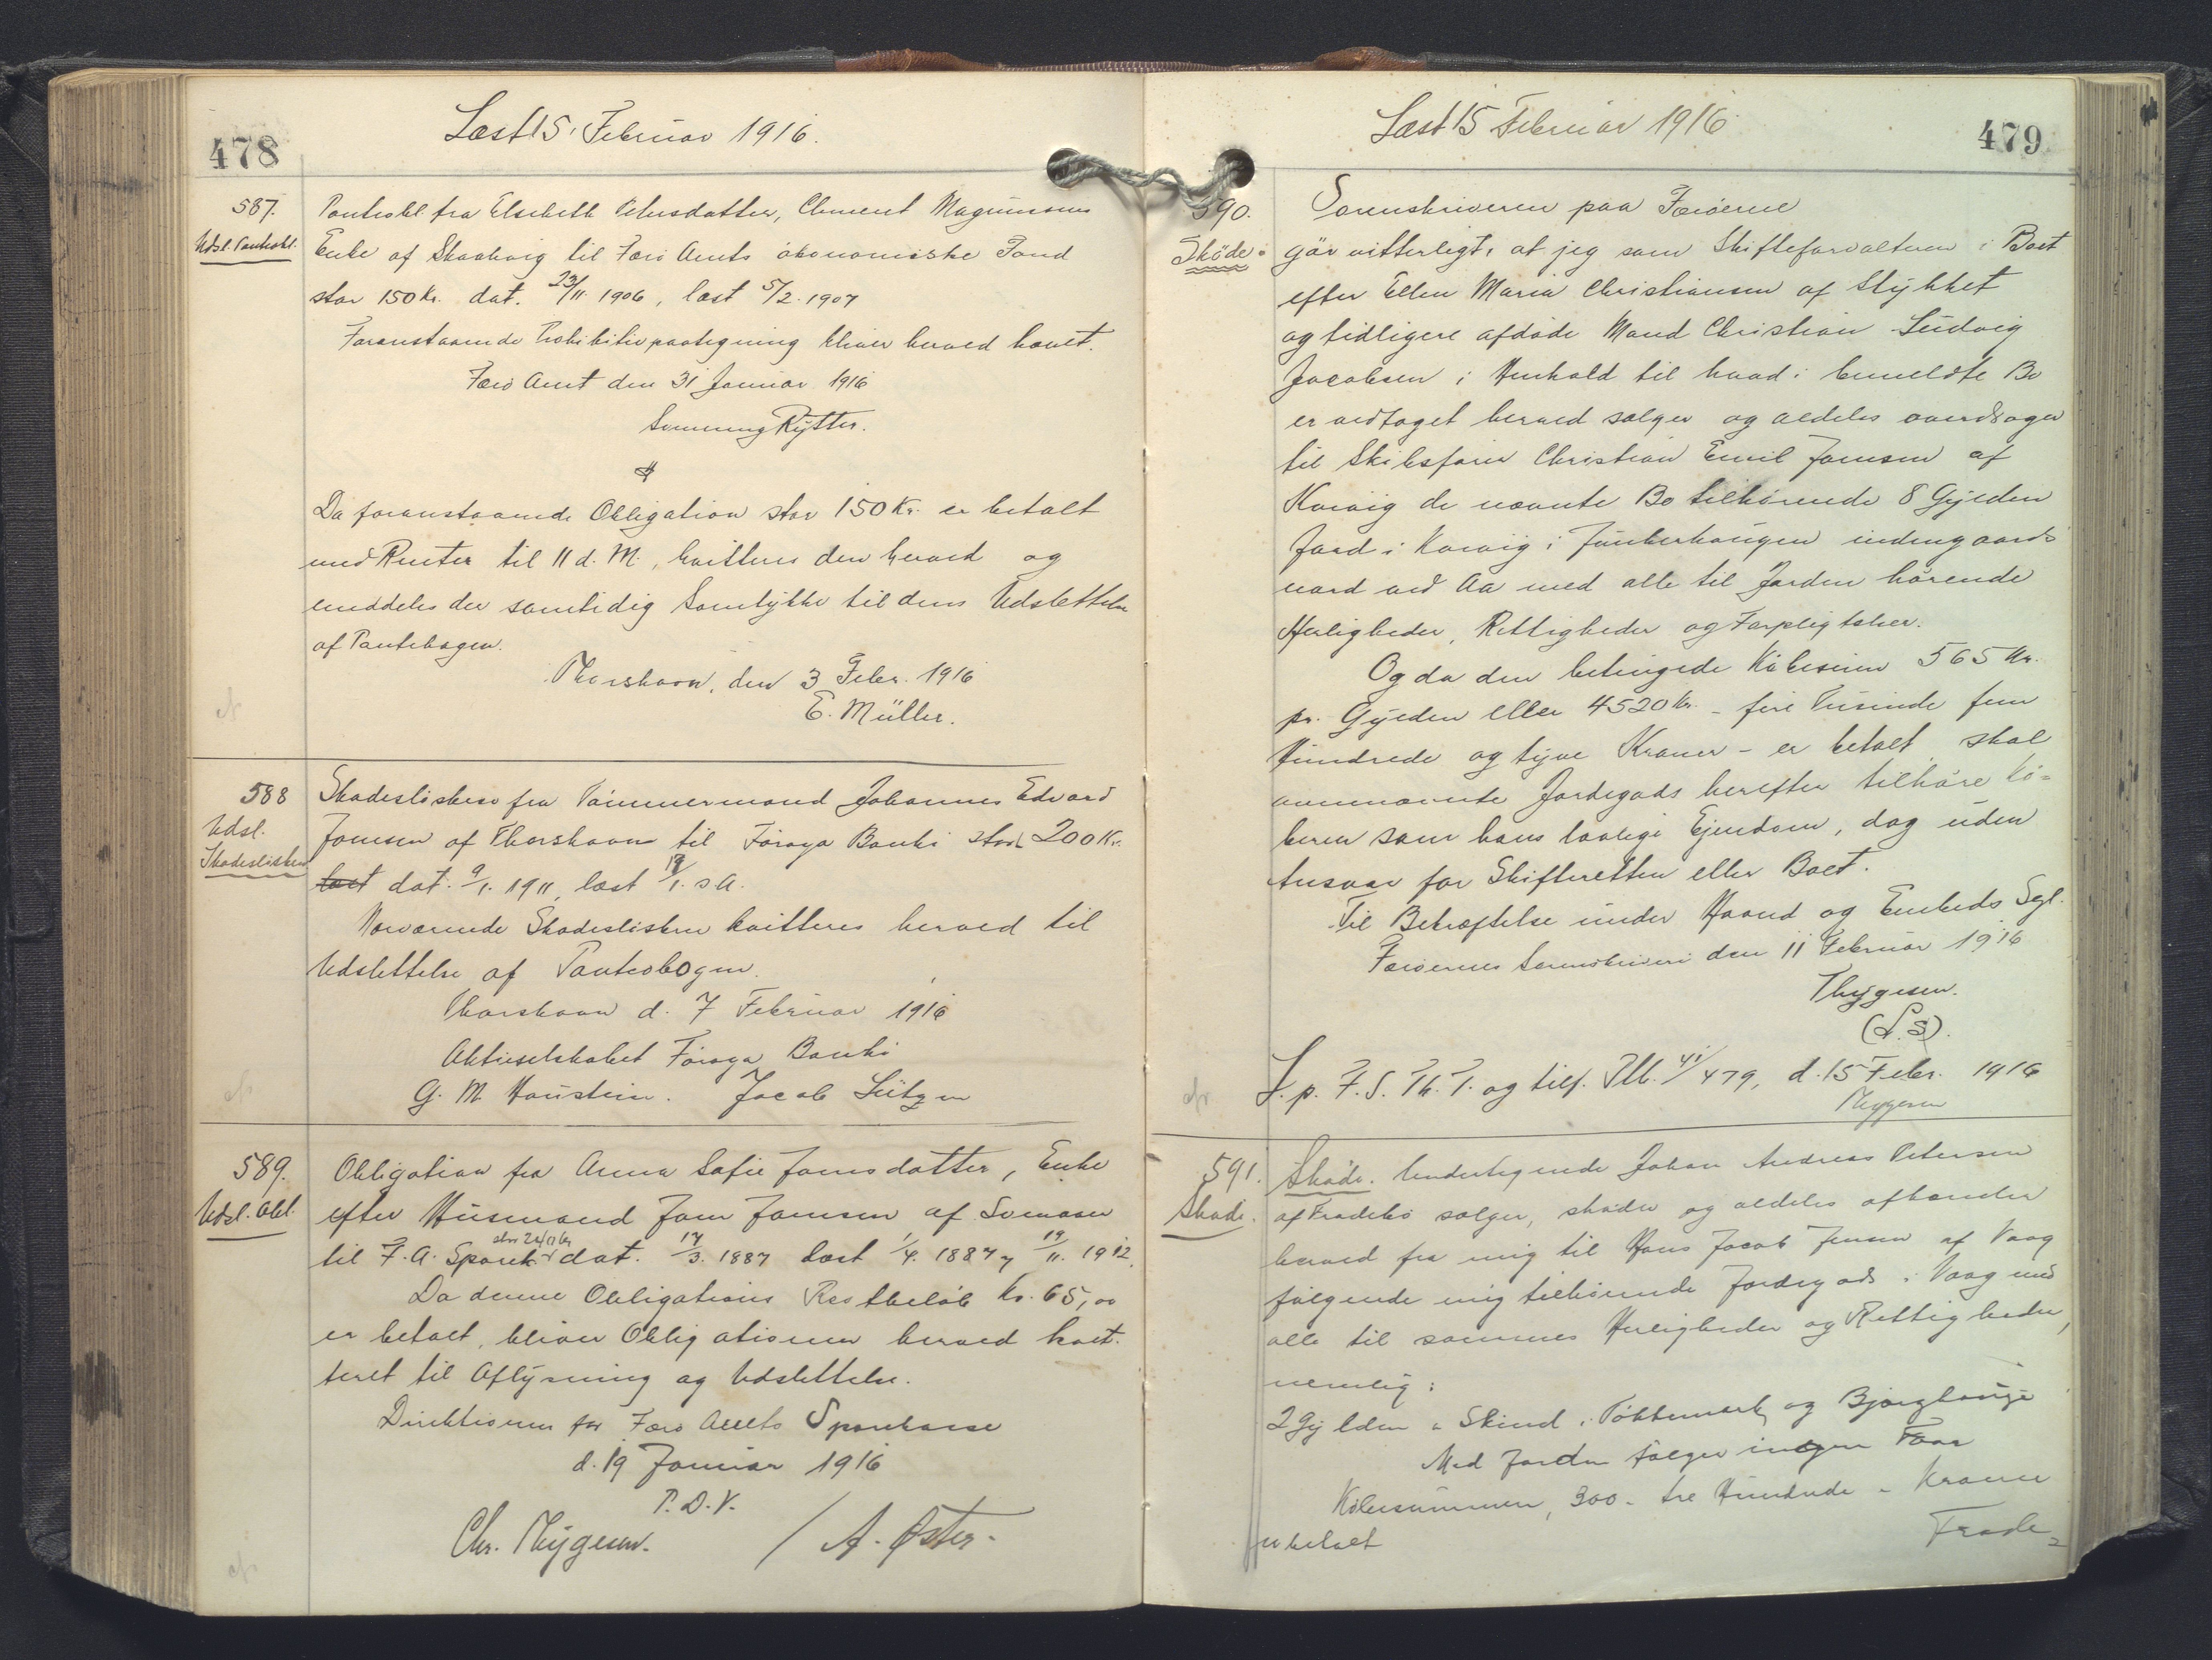 478
Læst 15. Februar 1916.
587.
Udsl. Panteobl.
Panteobl. fra Elsebeth Petersdatter, Clement Magnussens
Enke af Skaalevig til Færø Amts økonomiske Fond
stor 150 Kr. dat. 23/11 1906, læst 5/2. 1907
Foranstaaende Prohibitivpaategning bliver herved hævet.
Færø Amt den 31 Januar 1916
Svenning Rytter.
Da foranstaaende Obligation stor 150 Kr. er betalt
med Renter til 11 d. M., kvitteres den herved og
meddeles der samtidig Samtykke til dens Udslettelse
af Pantebogen.
Thorshavn, den 3 Febr. 1916
E. Müller.
588
Udsl.
Skadesløsbrev
Skadesløsbrev fra Tømmermand Johannes Edvard
Joensen af Thorshavn til Føroya Banki stort 200 Kr.
læst dat. 9/1. 1911, læst 17/1. s.A.
Nærværende Skadesløsbrev kvitteres herved til
Udslettelse af Panteobogen.
Thorshavn d. 7 Februar 1916
Aktieselskabet Føroya Banki
G. M. Haustein. Jacob Lützen
589.
Udsl. Obl.
Obligation fra Anna Sofie Joensdatter, Enke
efter Husmand Joen Joensen af Sumbøer
til F. A. Spark. dat. 17/3. 1887 læst 1/4. 1887 og 19/11. 1912.
Da denne Obligations Restbeløb Kr. 65,00
er betalt, bliver Obligationen herved kvit-
teret til Aflysning og Udslettelse.
Direktionen for Færø Amts Sparekasse
d. 19 Januar 1916
P. D. V.
Chr. Thygesen. / A. Øster.
Læst 15 Februar 1916.
479
590.
Skøde.
Sorenskriveren paa Færøerne
gør vitterligt, at jeg som Skifteforvalteren i Boet
efter Ellen Maria Christiansen af Stykket
og tidligere afdøde Mand Christian Ludvig
Jacobsen i Henhold til hvad i bemeldte Bo
er vedtaget herved sælger og aldeles overdrager
til Skibsfører Christian Emil Joensen af
Kvivig de nævnte Bo tilhørende 8 Gylden
Jord i Kvivig i Junkerhaugen indengaards
nord ved Aa med alle til Jorden hørende
Herligheder, Rettigheder og Forpligtelser.
Og da den betingede Købesum 565 Kr.
pr. Gylden eller 4520 Kr. - fire Tusinde fem
Hundrede og tyve Kroner - er betalt skal
ovennævnte Jordegods herefter tilhøre Kø-
beren som hans lovlige Ejendom, dog uden
Ansvar for Skifteretten eller Boet.
Til Bekræftelse under Haand og Embeds Segl.
Færøernes Sorenskriveri den 11 Februar 1916
Thygesen.
(L.S).
L. p. F. S. Th. T. og tilf. Ptb. 41/479, d. 15 Febr. 1916
Thygesen
591.
Skøde.
Skøde. Undertegnende Johan Andreas Petersen
af Fradebø sælger, skøder og aldeles afhænder
herved fra mig til Hans Jacob Jensen af Vaag
følgende mig tilhørende Jordegods i Vaag med
alle til sammes Herligheder og Rettigheder,
nemlig:
2 Gylden
Med Jorden følger ingen Faar
Købesummen, 300 - tre Hundrede - Kroner
er betalt
Frade=